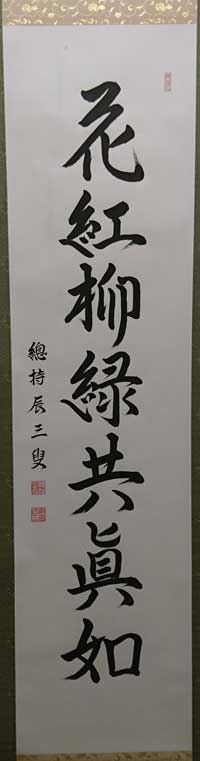 花紅柳緑共眞如
總持辰三叟